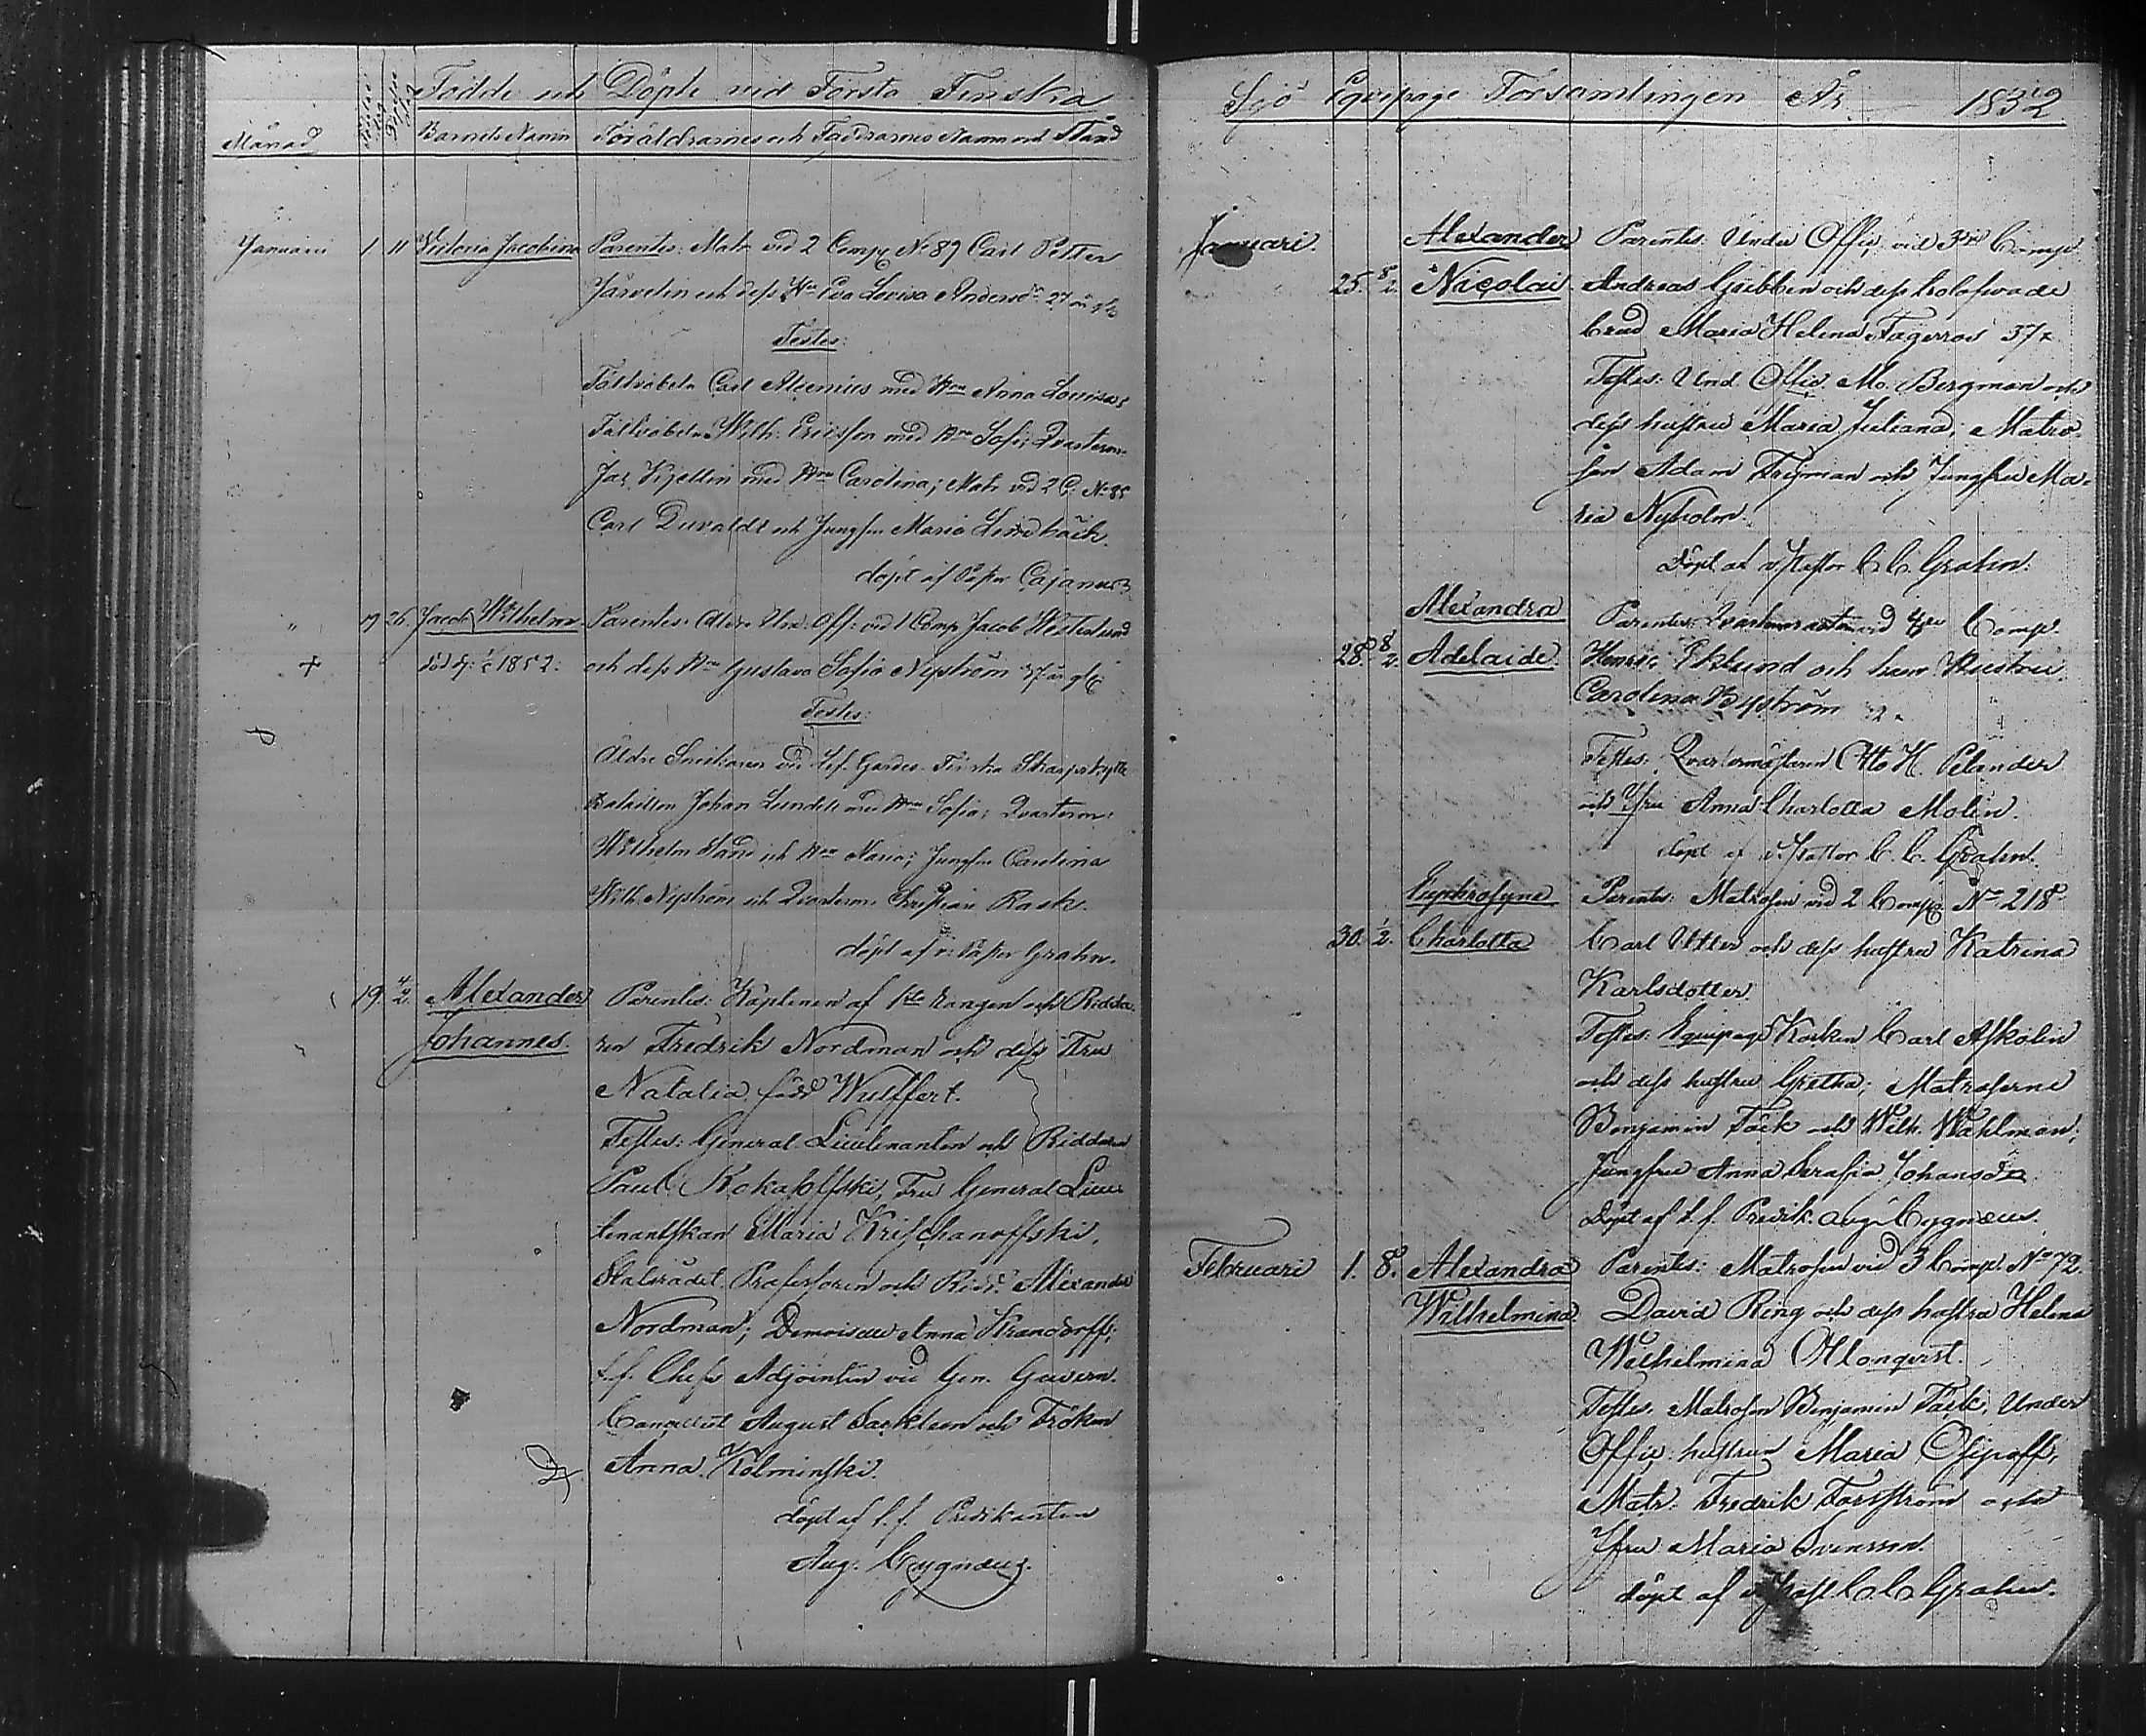 Födde och Döpte vid Första Finska
Månad Födelse dag Döpelse dag Barnets Namn Föräldrarnes och Faddrarnes Namn och Stånd
Januarii 1 11 Victoria Jacobina Parentes: Matr. vid 2 Comp. No 89 Carl Petter
Järvelin och dess Hu Eva Lovisa Andersdr 27 år gl.
Testes:
Carl Alcenius med Hru Anna Lovisa;
Wilh: Ericsson med Hru Sofi; Qvarterm.
Jac. med Hru Carolina; Matr vid 2 C. No 85
Carl Duvaldt och Jungfru Maria Lindbäck.
döpt af Pastor Cajanus.
" 19 26. Jacob Wilhelm. Parentes: Äldre Un: Off: vid 1 Comp. Jacob Westerlund
+ död d: 1852: och dess Hru Gustava Sofia Nyström 37 år gl.
Testes:
Äldre vid Lif. Gardes Finska Skarpskytte
Bataillon Johan Lundell med Hru Sofia; Qvarterm:
Wilhelm Sand och Hru Maria; Jungfru Carolina
Wilh. Nyström och Qvarterm: Christian Rask.
döpt af v: Pastor Grahn.
19. 4/2. Alexander Parentes: Kaptenen af 1sta rangen och Ridda-
Johannes. ren Fredrik Nordman och dess Fru
Natalia född Wulffert.
Testes: General Lieutenanten och Riddaren
Paul Rokassoffski, Fru General Lieu-
tenantskan Maria Krischanoffski,
Statsrådet Professoren och Ridd. Alexander
Nordman; Demoiselle Anna
t.f. Chefs Adjointen vid Gen. Guvern.
Cancelliet August och Fröken
Anna Kolminski.
döpt af t.f. Predikanten
Aug. Cygnæus.
Sjö Equipage Församlingen År 1852
Januari. Alexander Parentes: Under Offic. vid 3dje Comp.
25. 8/2. Nicolai Andreas Gribben och dess trolofvade
brud Maria Helena Fagerros 37
Testes: Und. Offic. Mo. Bergman och
dess hustru Maria Juliana; Matro-
sen Adam Frijman och Jungfru Ma-
ria Nyholm.
Döpt af v. Pastor C. C. Grahn.
Alexandra Parentes: Qvartermästaren vid 4de Comp.
28. 8/2. Adelaide. Henric Eklund och hans Hustru
Carolina Byström
Testes: Qvartermästaren Otto H. Pelander
och Jfru Anna Charlotta Molin.
döpt af v. Pastor C. C. Grahn.
Euphrosyne Parentes: Matrosen vid 2 Comp. No 218
30. 1/2. Charlotta Carl Utter och dess hustru Katrina
Karlsdotter.
Testes: Equipage Kocken Carl Askolin
och dess hustru Gretha; Matroserne
Benjamin Täck och Wilh. Wahlman;
Jungfru Anna Serafia Johansdr
Döpt af t.f. Predik. Aug. Cygnæus.
Februari 1. 8. Alexandra Parentes: Matrosen vid 3 Comp. No 72.
Wilhelmina. David Ring och dess hustru Helena
Wilhelmina Ollonqvist.
Testes. Matrosen Benjamin Täck, Under
Offic. hustrun Maria Osipoff,
Matr. Fredrik Forsström och
Jfru Maria Svensson.
döpt af v. Past. C. C. Grahn.